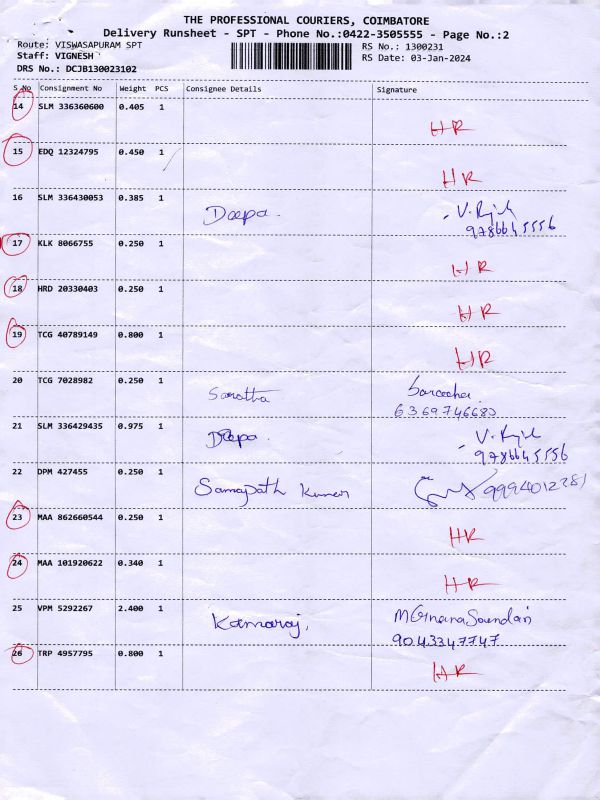 THE PROFESSIONAL COURIERS, COIMBATORE
Delivery Runsheet - SPT - Phone No.:0422-3505555 - Page No.:2
Route: VISWASAPURAM SPT
Staff: VIGNESH
DRS No.: DCJB130023102
RS No.: 1300231
RS Date: 03-Jan-2024
S No Consignment No Weight PCS Consignee Details Signature
14 SLM 336360600 0.405 1 HR
15 EDQ 12324795 0.450 1 HR
16 SLM 336430053 0.385 1 Deepa.
9786645556
17 KLK 8066755 0.250 1 HR
18 HRD 20330403 0.250 1 HR
19 TCG 40789149 0.800 1 HR
20 TCG 7028982 0.250 1
6369746683
21 SLM 336429435 0.975 1 Deepa.
9786645556
22 DPM 427455 0.250 1 Kumar
23 MAA 862660544 0.250 1 HR
24 MAA 101920622 0.340 1 HR
25 VPM 5292267 2.400 1 Kamaraj,
9043347747
26 TRP 4957795 0.800 1 HR